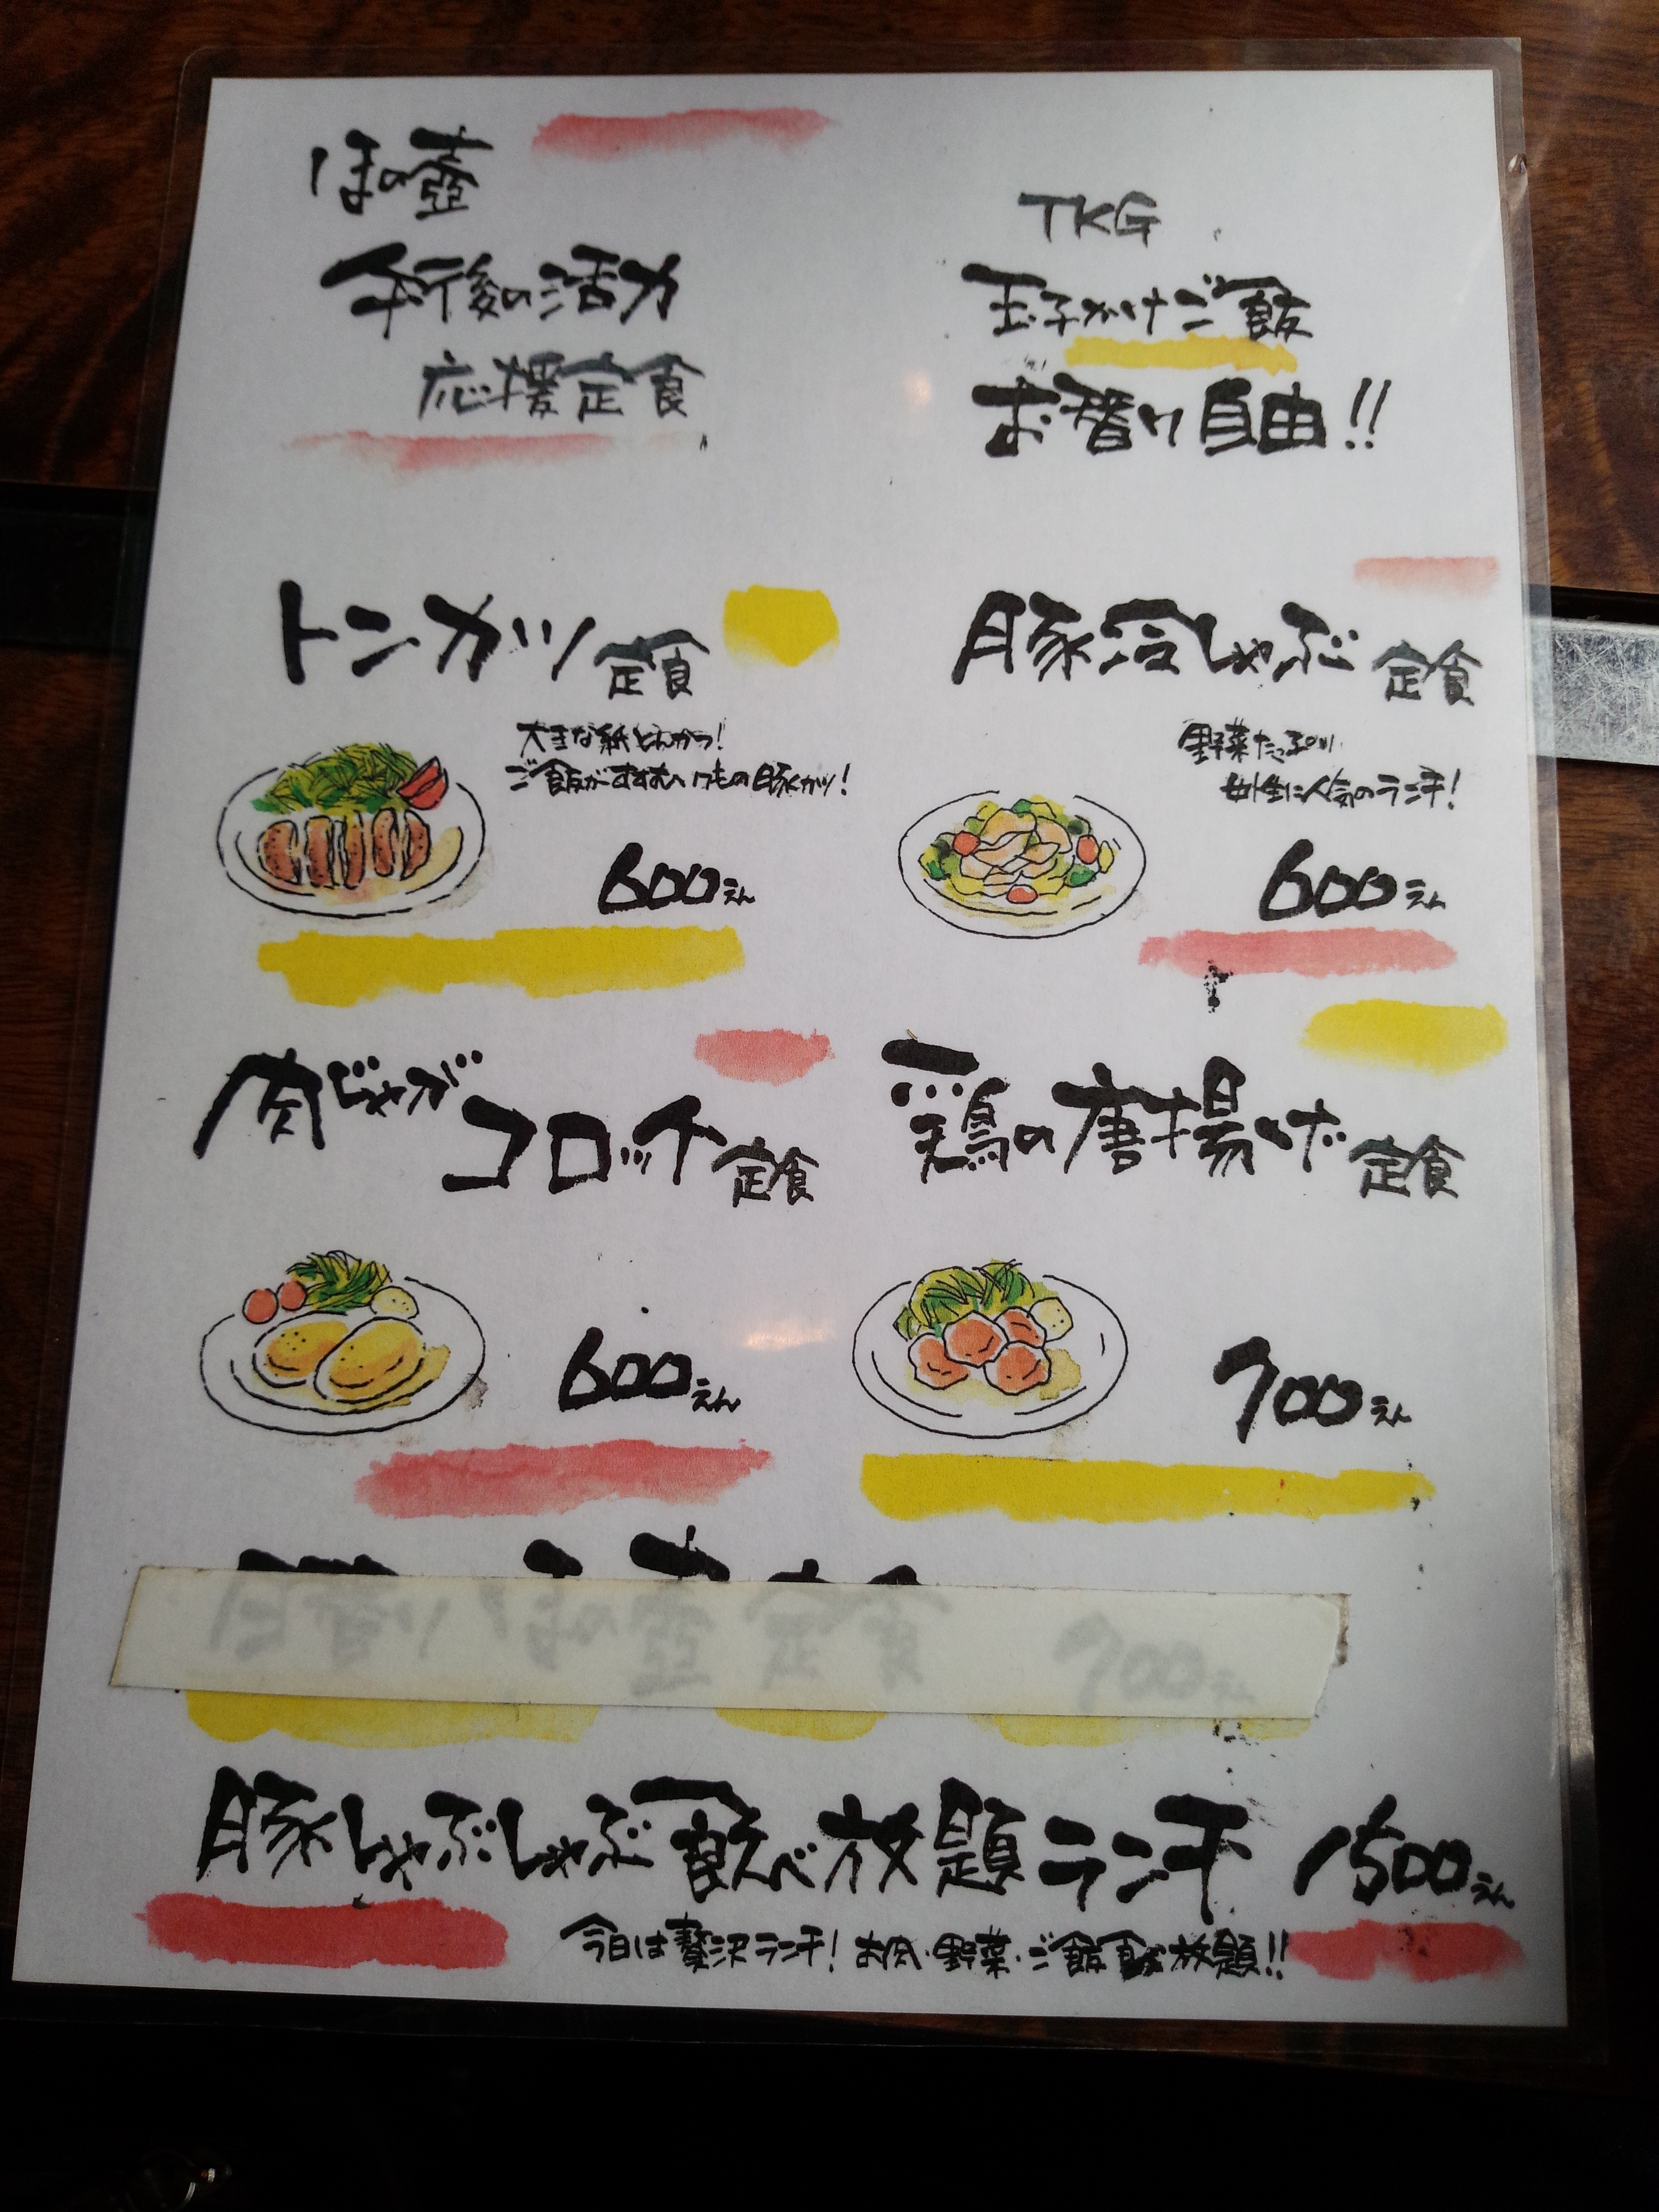 ほの壺
午後の活力
応援定食
TKG
玉子かけご飯
お替り自由!!
トンカツ定食
大きな紙とんかつ!
ご飯がすすむいけもの豚カツ!
600えん
豚冷しゃぶ定食
野菜たっぷり
女性に人気のランチ!
600えん
肉じゃが
コロッケ定食
600えん
鶏の唐揚げ定食
700えん
日替りほの壺定食 700えん
豚しゃぶしゃぶ食べ放題ランチ 1500えん
今日は贅沢ランチ! お肉・野菜・ご飯食べ放題!!